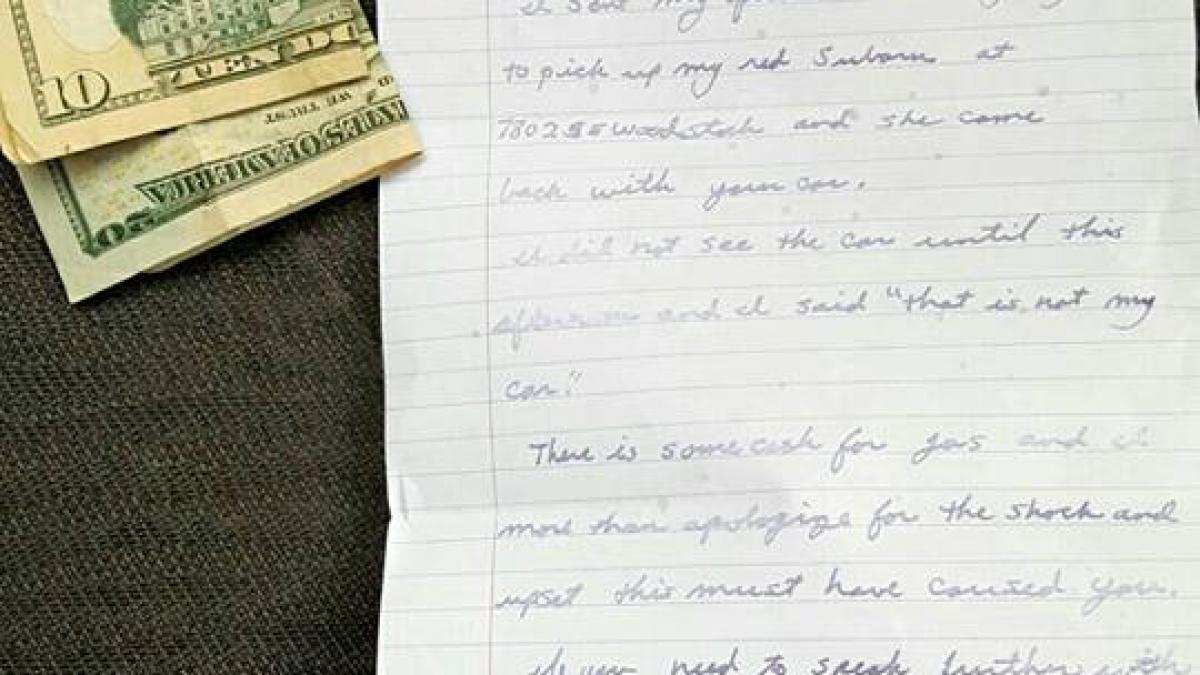 10
WE TRUST
UNITED STATES OF AMERICA
20
I sent my
to pick up my red Subaru at
7802 SE Woodstock and she came
back with your car.
I did not see the car until this
afternoon and I said "that is not my
car."
There is some cash for gas and I
more than apologize for the shock and
upset this must have caused you.
If you need to speak further with